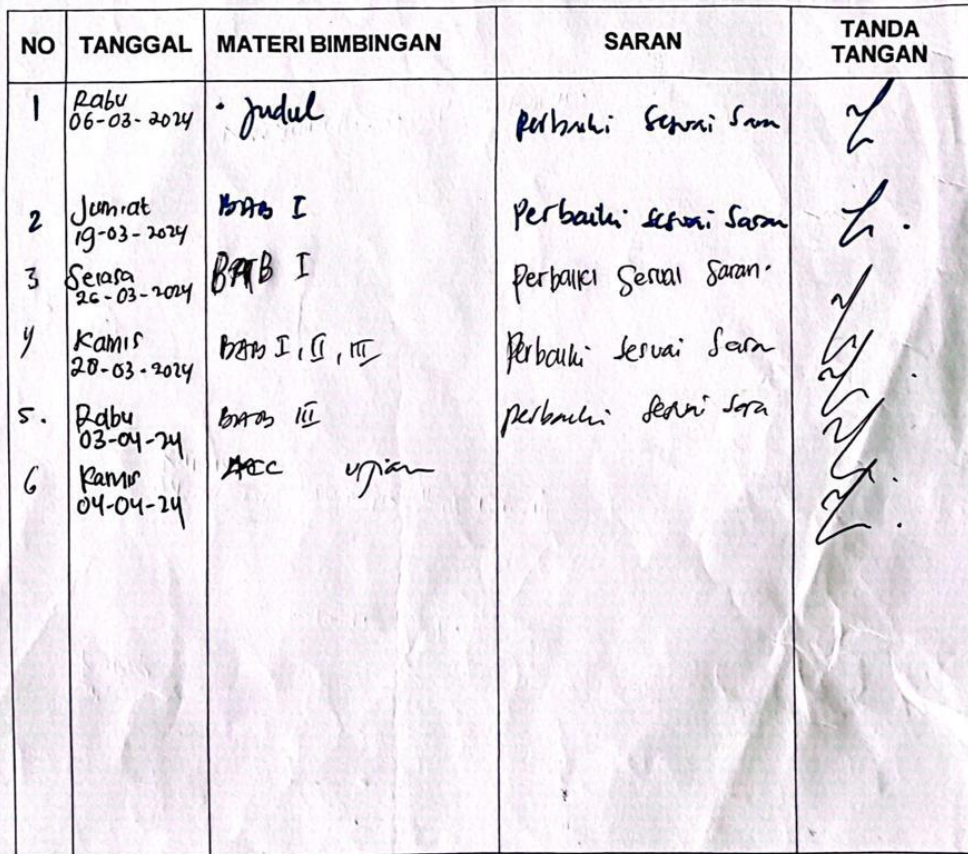 NO TANGGAL MATERI BIMBINGAN SARAN TANDA TANGAN
1 Rabu 06-03-2024 • Judul Perbaiki Sesuai Saran
2 Jum'at 19-03-2024 BAB I Perbaiki Sesuai Saran
3 Selasa 26-03-2024 BAB I Perbaiki Sesuai Saran.
4 Kamis 28-03-2024 BAB I, II, III Perbaiki Sesuai Saran
5. Rabu 03-04-24 BAB III Perbaiki Sesuai Saran
6 Kamis 04-04-24 ACC ujian